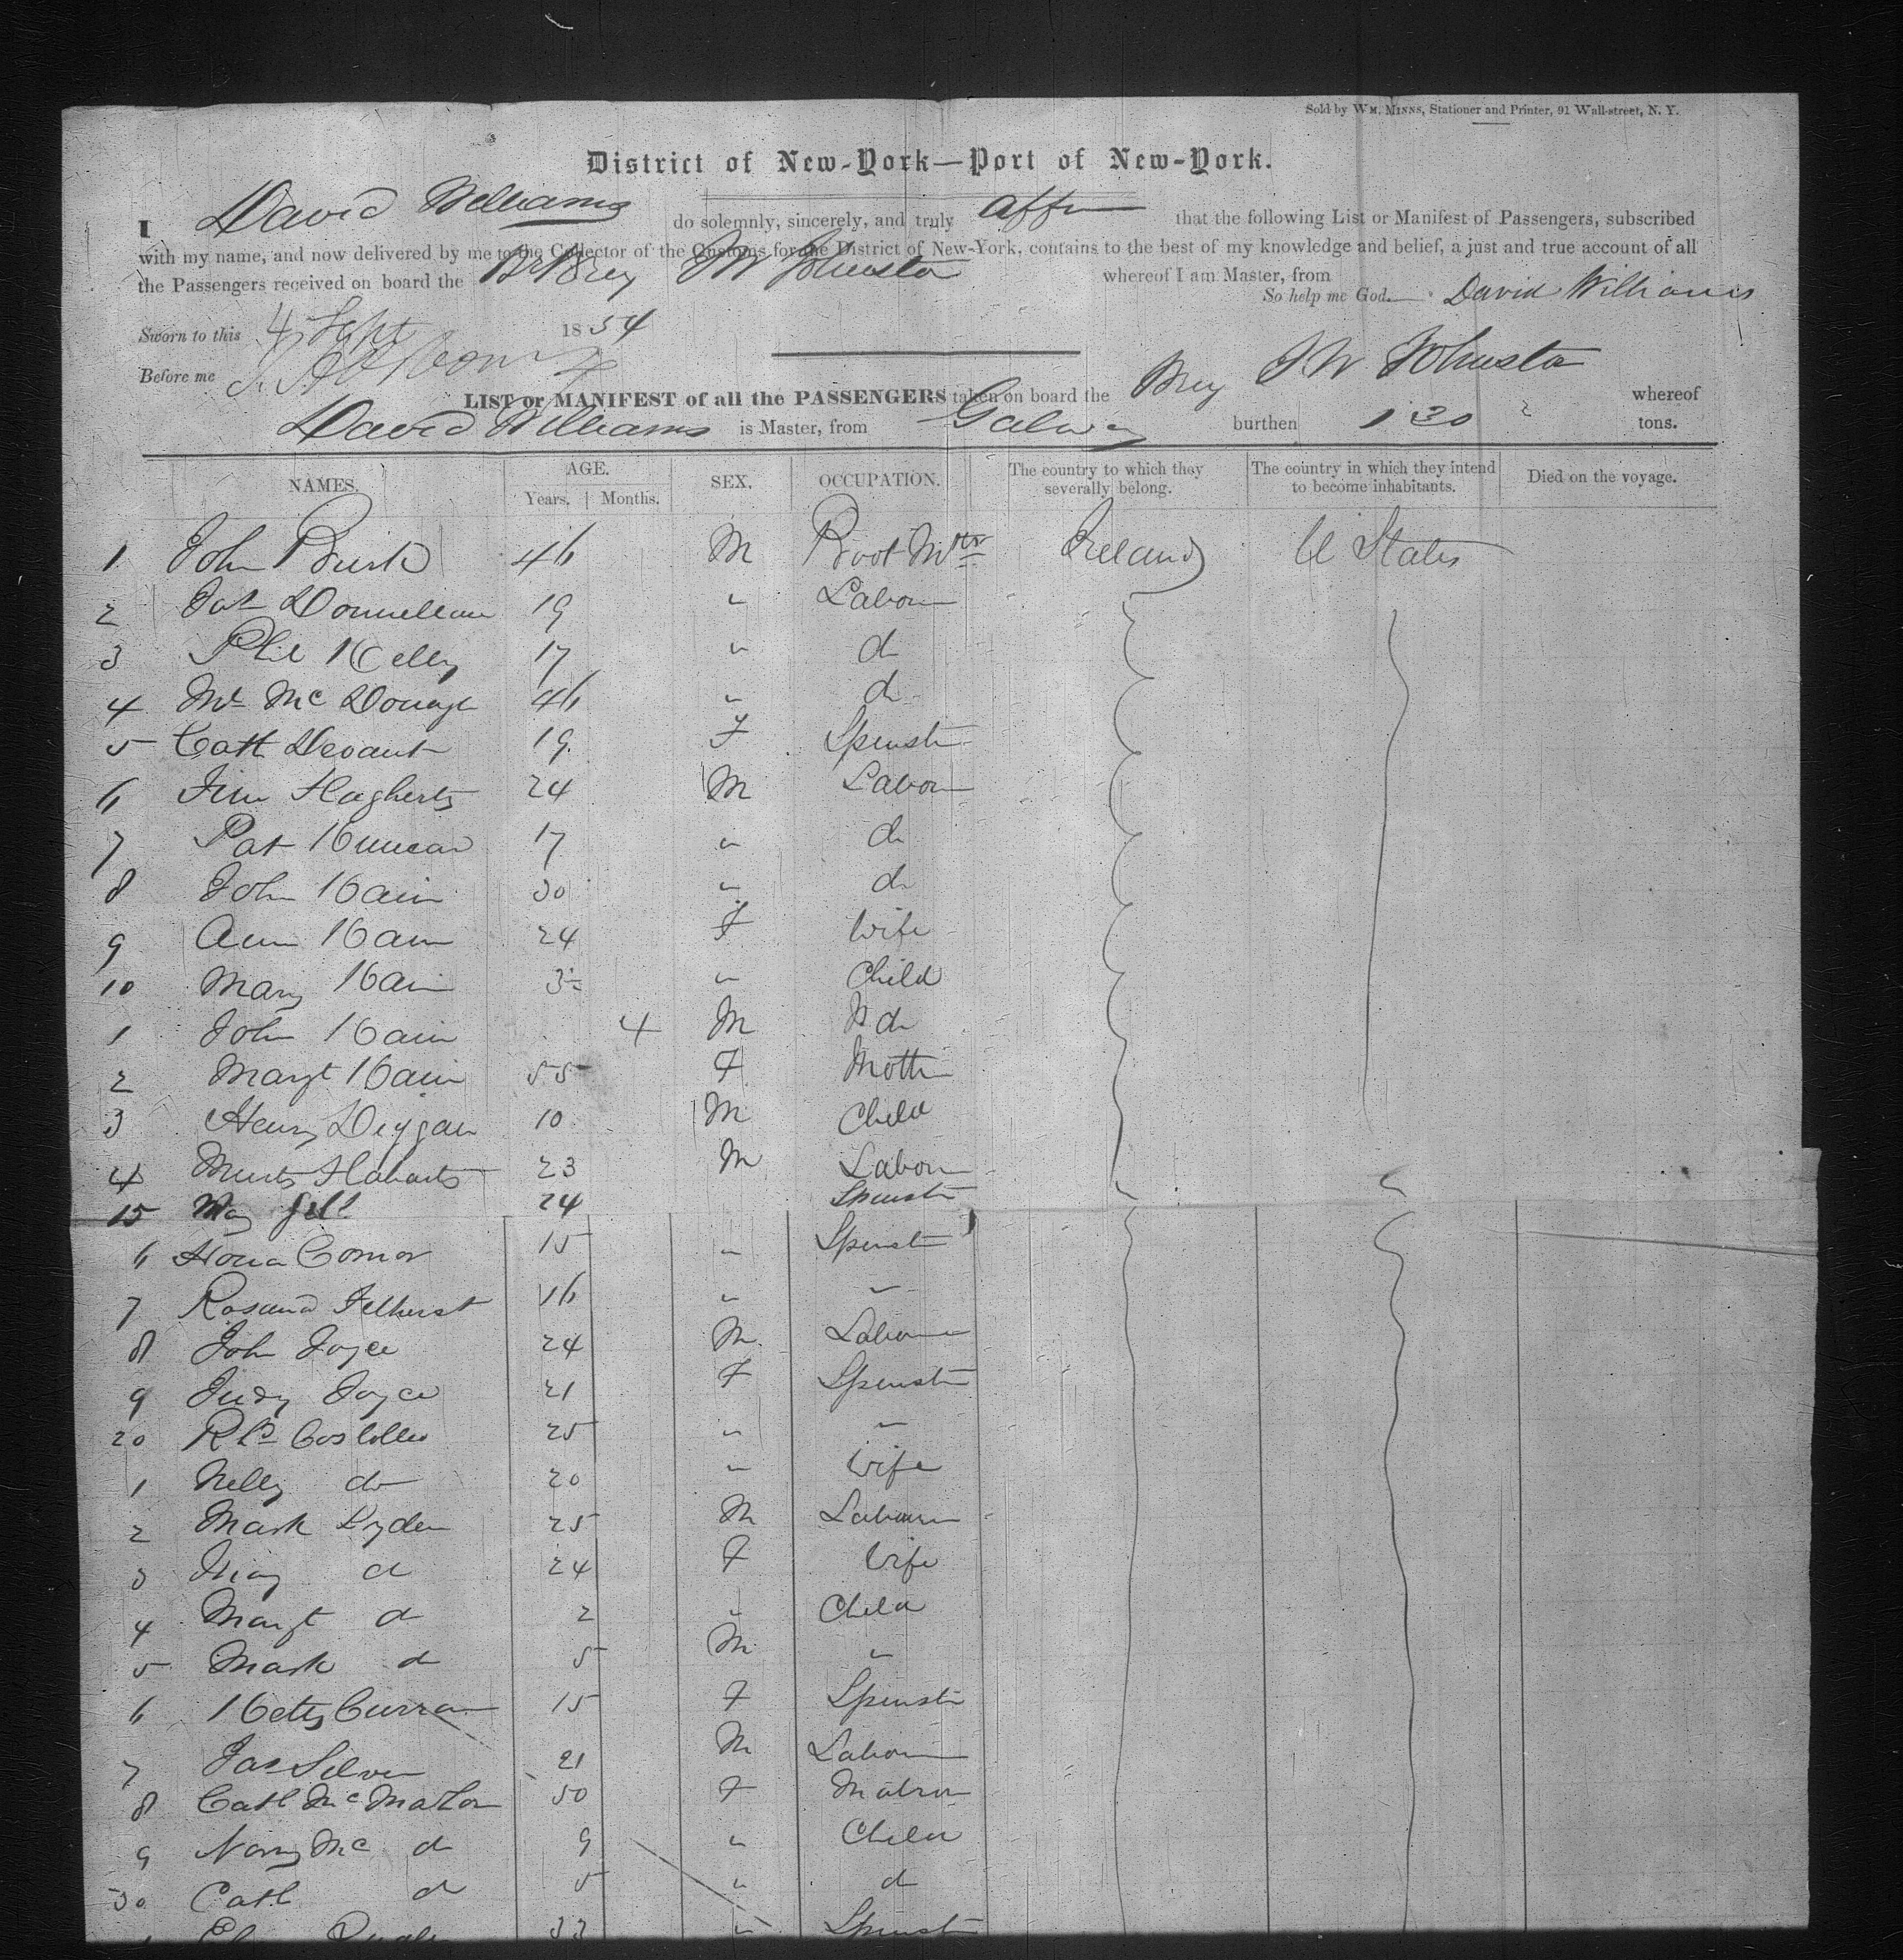 Sold by WM. MINNS, Stationer and Printer, 91 Wall-street, N. Y.
District of New-York—Port of New-York.
I David Williams do solemnly, sincerely, and truly affm that the following List or Manifest of Passengers, subscribed
with my name, and now delivered by me to the Collector of the Customs for the District of New-York, contains to the best of my knowledge and belief, a just and true account of all
the Passengers received on board the Brig J W Johnston whereof I am Master, from
So help me God. David Williams
Sworn to this 4 Sept 1854
Before me
LIST or MANIFEST of all the PASSENGERS taken on board the Brig J W Johnston whereof
David Williams is Master, from Galway burthen 130 tons.
NAMES. AGE. Years. Months. SEX. OCCUPATION. The country to which they severally belong. The country in which they intend to become inhabitants. Died on the voyage.
1 John 46 M Boot Mkr Ireland U States
2 Pat Donnellan 19 " Labour
3 Phil Kelly 17 " do
4 Ml McDonagh 46 " do
5 Cath 19 F Spinstr
6 Jim Flagherty 24 M Labour
7 Pat 17 " do
8 John Kain 30 " do
9 Ann Kain 24 F Wife
10 Mary Kain 3 " Child
1 John Kain 4 M do
2 Margt Kain 55 F Mothr
3 Henry Diggan 10 M Child
4 23 M Labour
15 May Gill 24 Spinstr
6 Hona Connor 15 " Spinstr
7 Rosanna 16 " "
8 John Joyce 24 M Labour
9 Judy Joyce 21 F Spinstr
20 Costolloe 25 " "
1 Nelly do 20 " Wife
2 Mark Lyden 25 M Labourr
3 do 24 F Wife
4 Margt do 2 " Child
5 Mark do 5 M "
6 Ketty Curran 15 F Spinstr
7 Jas Silver 21 M Labour
8 Cath McMahon 50 F Matron
9 Nory Mc do 9 " Child
30 Cath do 5 " do
33 " Spinstr